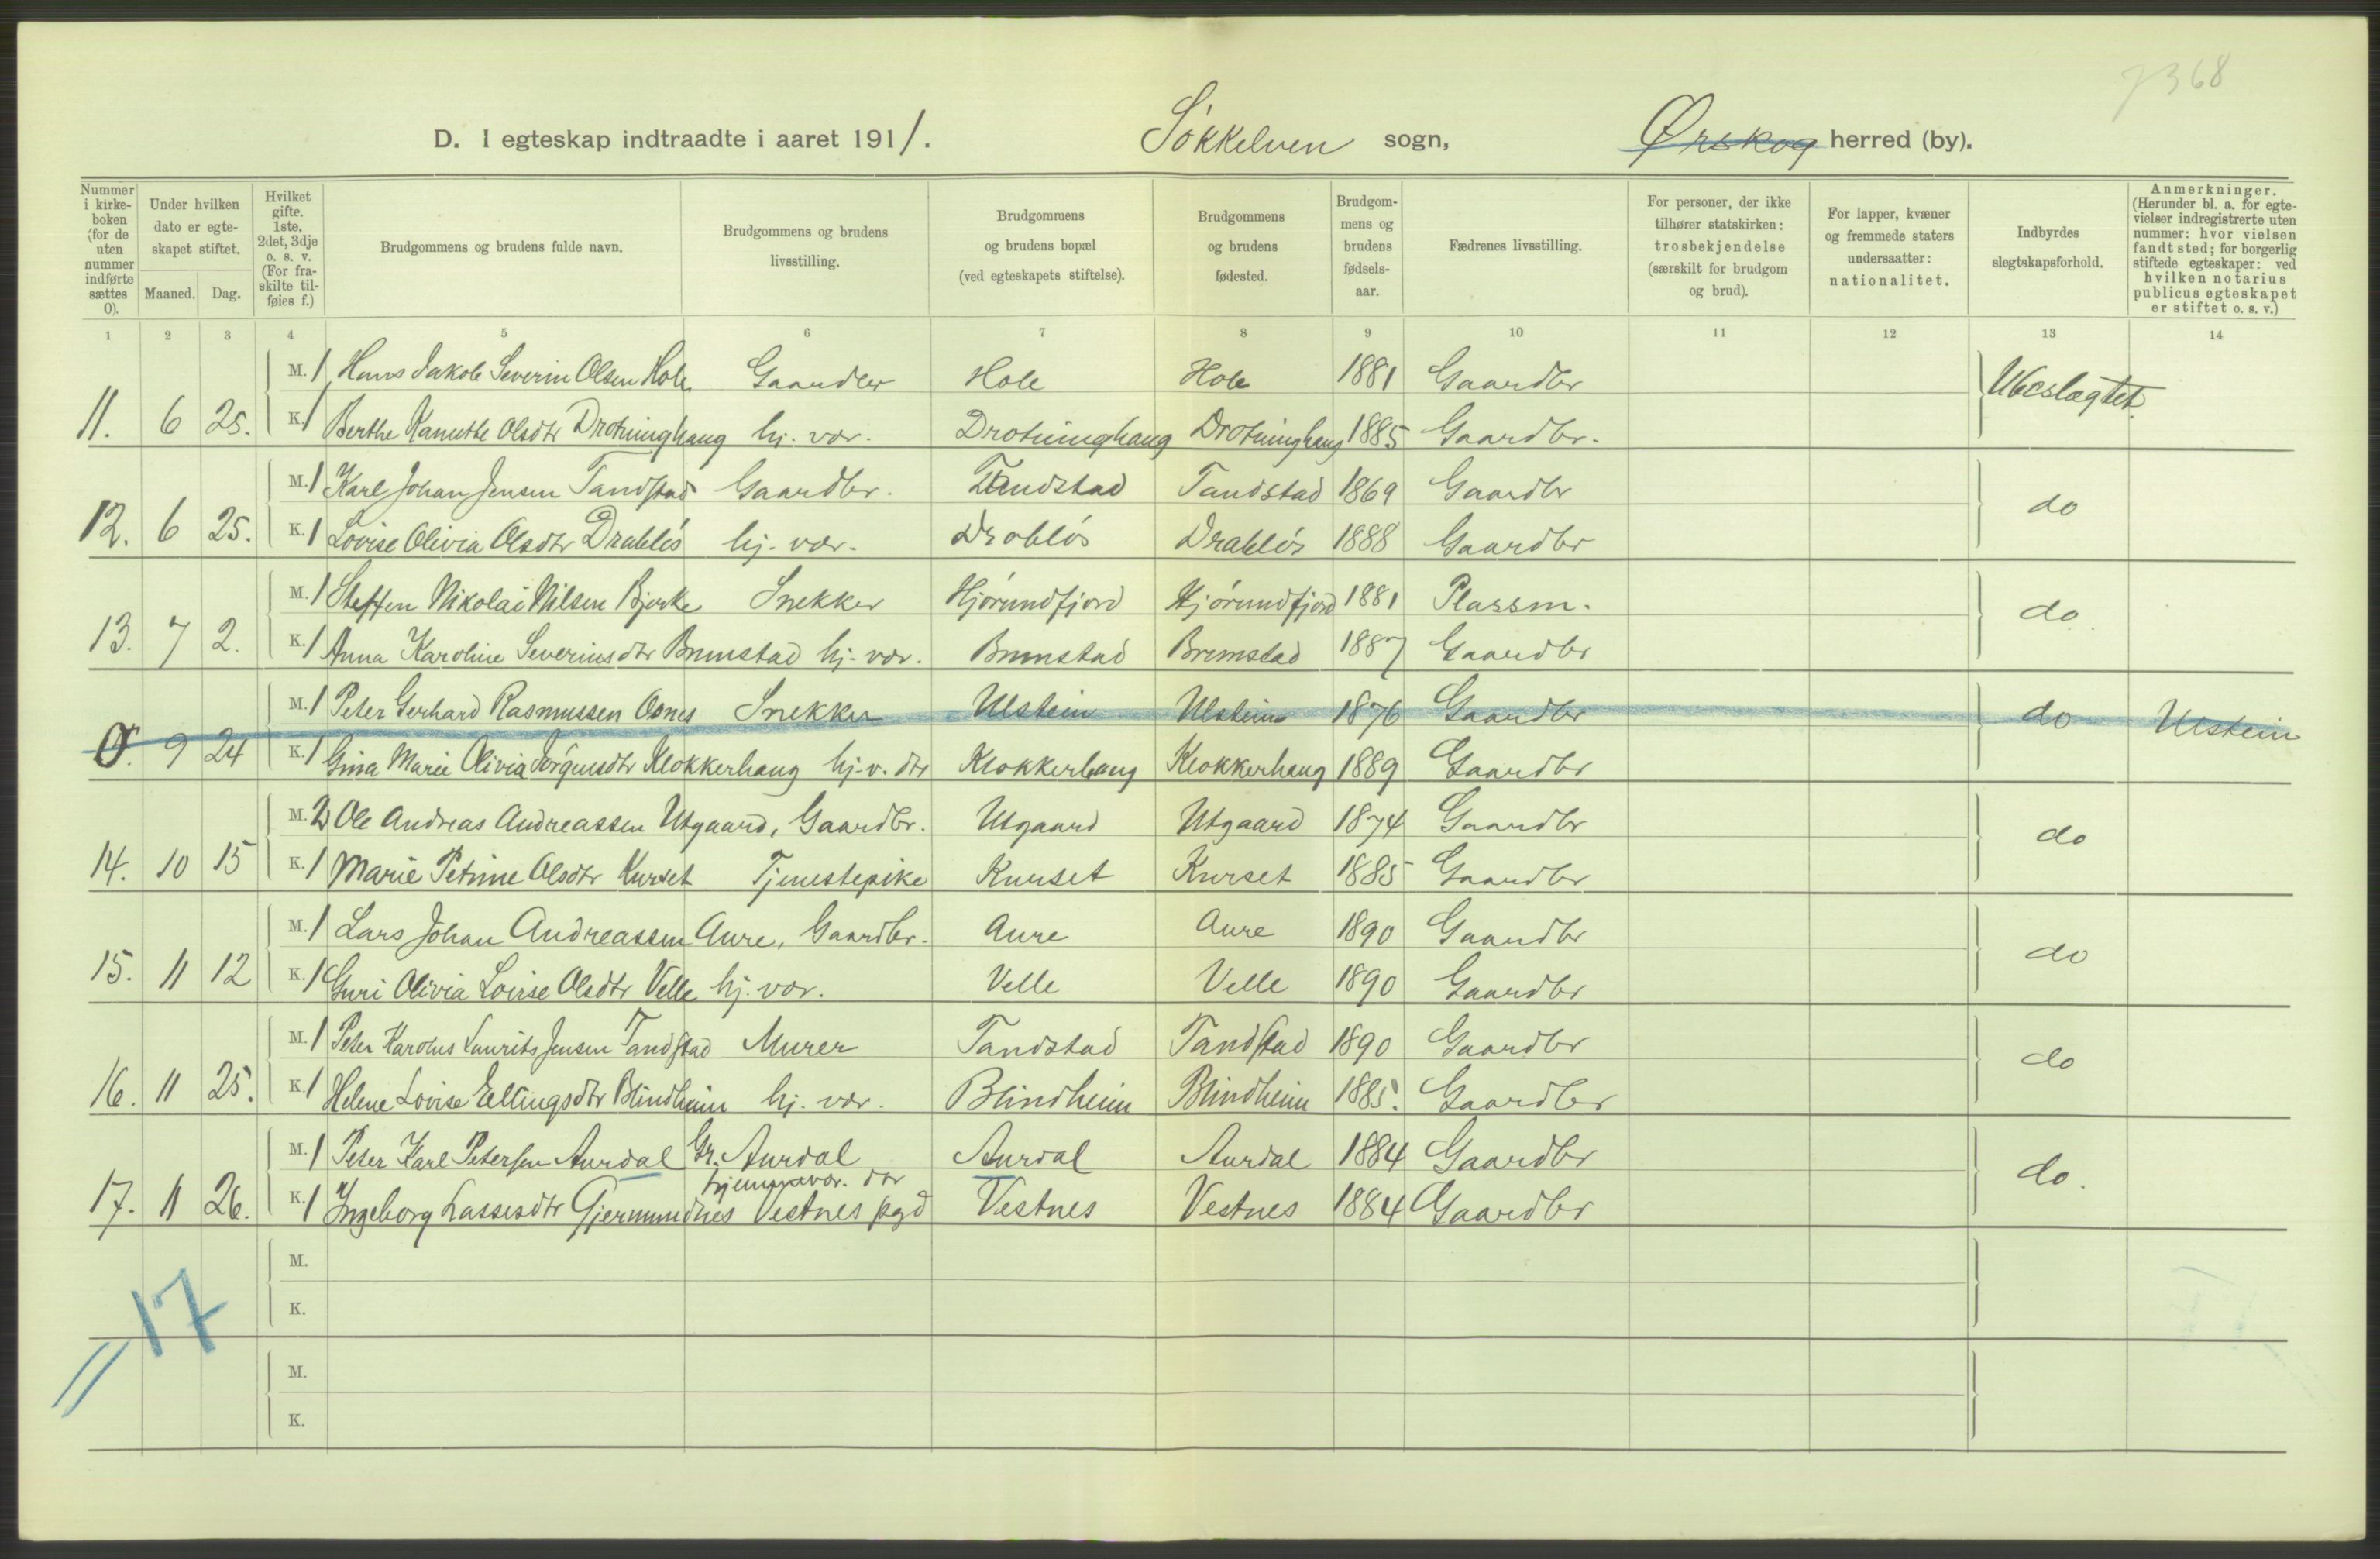 7368
D. I egteskap indtraadte i aaret 1911. Søkkelven sogn, Ørskog herred (by).
Nummer i kirke-boken (for de uten nummer indførte sættes 0). Under hvilken dato er egte-skapet stiftet. Maaned. Dag. Hvilket gifte. 1ste, 2det, 3dje o. s. v. (For fra-skilte til-føies f.) Brudgommens og brudens fulde navn. Brudgommens og brudens livsstilling. Brudgommens og brudens bopæl (ved egteskapets stiftelse). Brudgommens og brudens fødested. Brudgom-mens og brudens fødsels-aar. Fædrenes livsstilling. For personer, der ikke tilhører statskirken: trosbekjendelse (særskilt for brudgom og brud). For lapper, kvæner og fremmede staters undersaatter: nationalitet. Indbyrdes slegtskapsforhold. Anmerkninger. (Herunder bl. a. for egte-vielser indregistrerte uten nummer: hvor vielsen fandt sted; for borgerlig stiftede egteskaper: ved hvilken notarius publicus egteskapet er stiftet o. s. v.)
1 2 3 4 5 6 7 8 9 10 11 12 13 14
M. 1 Hans Jakob Severin Olsen Hole Gaardbr Hole Hole 1881 Gaardbr Ubeslægtet
11. 6 25. K. 1 Berthe Kanutte Olsdtr Drotninghaug hj. vær. Drotninghaug Drotninghaug 1885 Gaardbr.
M. 1 Karl Johan Jensen Tandstad Gaardbr. Tandstad Tandstad 1869 Gaardbr do
12. 6 25. K. 1 Lovise Olivia Olsdtr Drabløs hj. vær. Drabløs Drabløs 1888 Gaardbr
M. 1 Steffen Nikolai Nilsen Bjerke Snekker Hjørundfjord Hjørundfjord 1881 Plassm. do.
13. 7 2. K. 1 Anna Karoline Severinsdtr Brunstad hj. vær. Brunstad Brunstad 1887 Gaardbr
M. 1 Peter Gerhard Rasmussen Osnes Snekker Ulstein Ulstein 1876 Gaardbr do Ulstein
0. 9 24 K. 1 Gina Marie Olivia Jørgensdtr Klokkerhaug hj. v. dtr Klokkerhaug Klokkerhaug 1889 Gaardbr
M. 2 Ole Andreas Andreassen Utgaard, Gaardbr. Utgaard Utgaard 1874 Gaardbr do
14. 10 15 K. 1 Marie Petrine Olsdtr Kurset Tjenestepike Kurset Kurset 1885 Gaardbr
M. 1 Lars Johan Andreassen Aure, Gaardbr. Aure Aure 1890 Gaardbr do
15. 11 12 K. 1 Guri Olivia Lovise Olsdtr Velle hj. vær. Velle Velle 1890 Gaardbr
M. 1 Peter Karolus Laurits Jensen Tandstad Murer Tandstad Tandstad 1890 Gaardbr do
16. 11 25. K. 1 Helene Lovise Ellingsdtr Blindheim hj. vær. Blindheim Blindheim 1885. Gaardbr
M. 1 Peter Karl Petersen Aurdal Gr. Aurdal Aurdal Aurdal 1884 Gaardbr do.
hjemmevær. dtr
17. 11 26. K. 1 Ingeborg Lassesdtr Gjermundnes Vestnes pgd Vestnes Vestnes 1884 Gaardbr
M.
17 K.
M.
K.